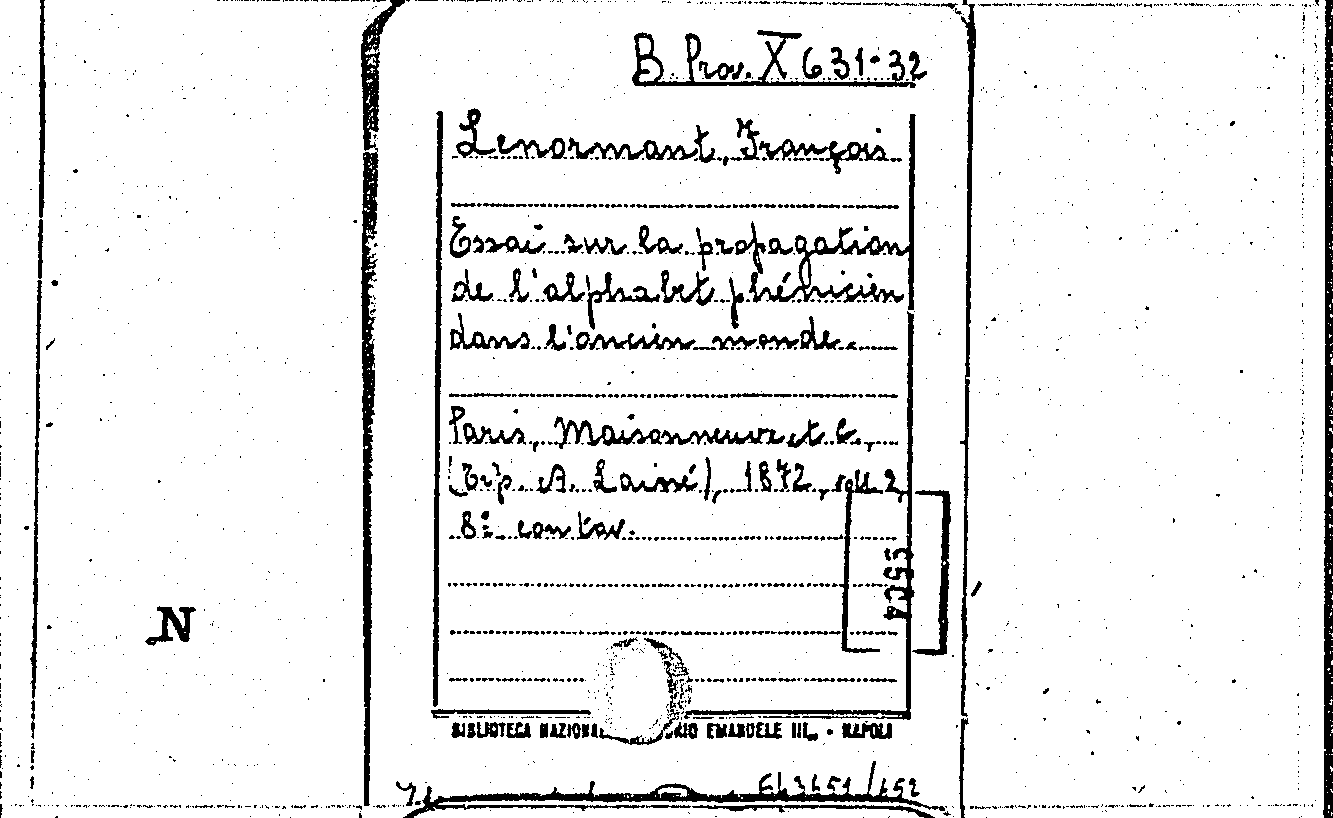 B. Prov. X 631-32
Lenormant, François
Essai sur la propagation
de l'alphabet phénicien
dans l'ancien monde.
Paris, Maisonneuve et C.,
(Tip. A. Lainé), 1872, voll. 2,
8º con tav.
N
BIBLIOTECA EMANUELE III„ - NAPOLI